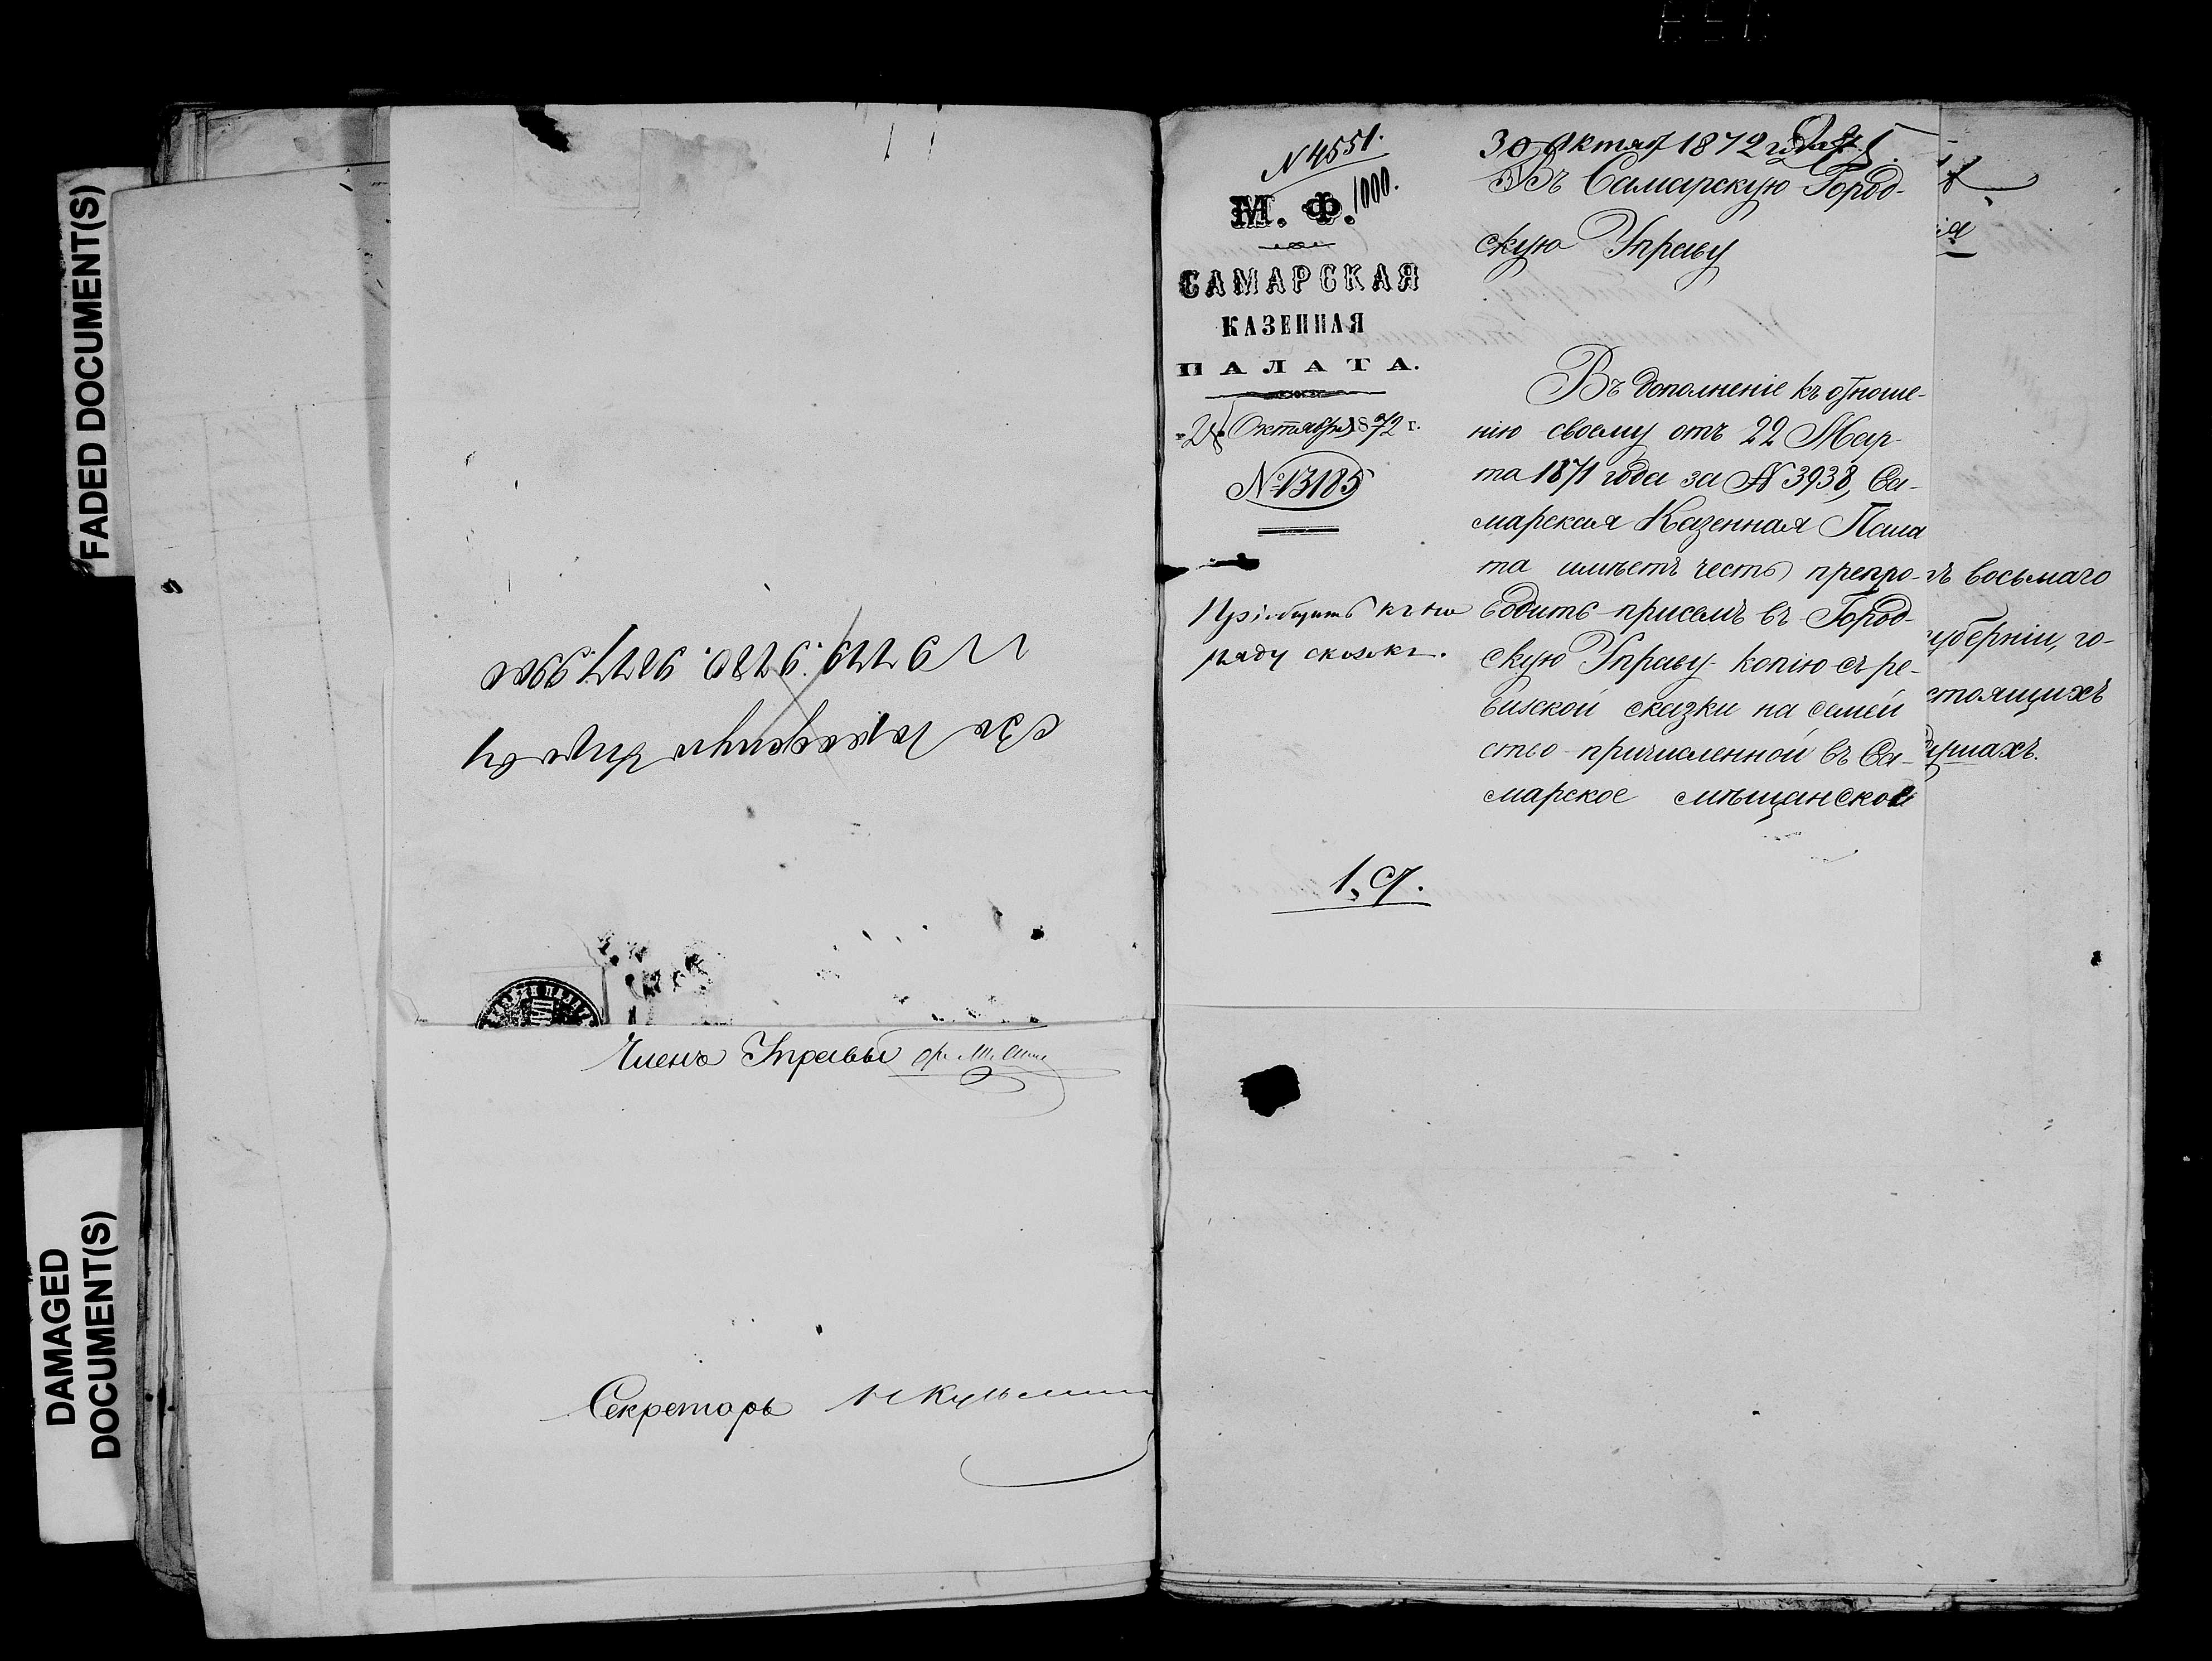 FADED DOCUMENT(S)
DAMAGED
DOCUMENT(S)
Въ Самарскую Управу
Членъ Управы
Секретарь
N 4551.
М. Ф. 1000.
САМАРСКАЯ
КАЗЕННАЯ
ПАЛАТА.
Октября 1872 г.
№ 13185
Пріобщить къ на
ряду сказокъ.
1. ст.
30 Октяб 1872 года
Въ Самарскую Город-
скую Управу
Въ дополненіе къ отноше-
нію своему отъ 22 Мар-
та 1871 года за N 3938, Са-
марская Казенная Пала
та имѣетъ честь препро-
водить присемъ въ Город-
скую Управу копію съ ре-
визской сказки на семей
ство причисленной въ Са-
марское мѣщанское
ъ восьмаго
уберніи, го-
стоящихъ
душахъ.